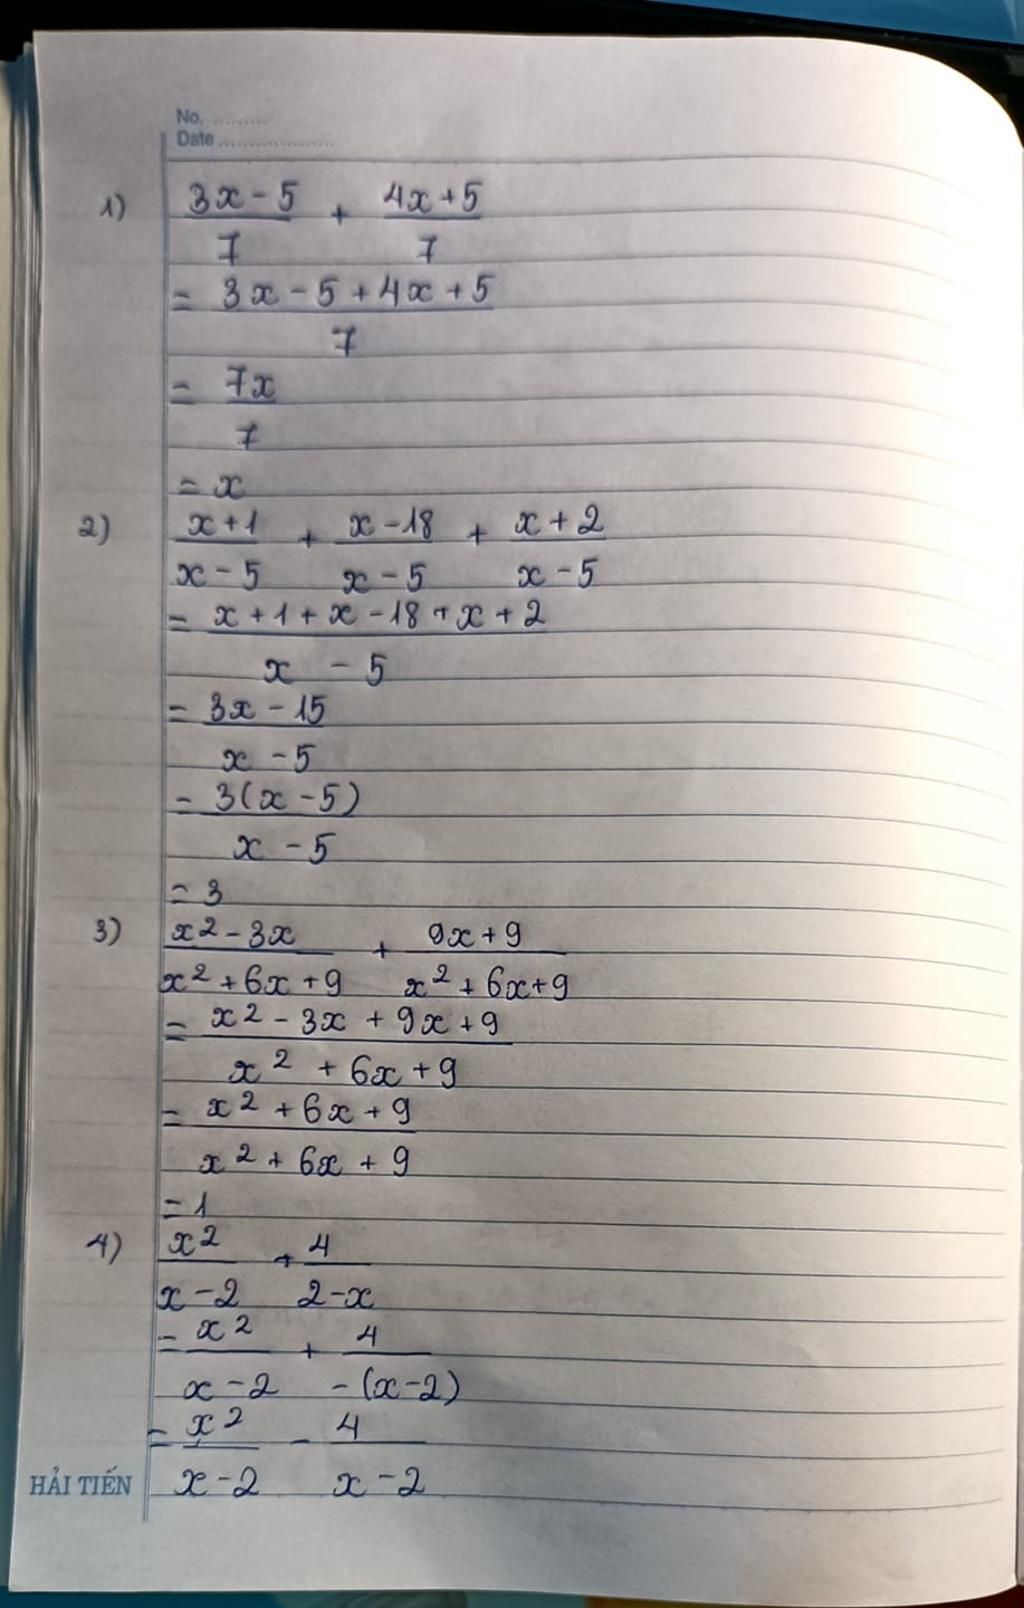 No. .........
Date ...................
1) (3x - 5)/7 + (4x + 5)/7
= (3x - 5 + 4x + 5)/7
= 7x/7
= x
2) (x + 1)/(x - 5) + (x - 18)/(x - 5) + (x + 2)/(x - 5)
= (x + 1 + x - 18 + x + 2)/(x - 5)
= (3x - 15)/(x - 5)
= 3(x - 5)/(x - 5)
= 3
3) (x² - 3x)/(x² + 6x + 9) + (9x + 9)/(x² + 6x + 9)
= (x² - 3x + 9x + 9)/(x² + 6x + 9)
= (x² + 6x + 9)/(x² + 6x + 9)
= 1
4) x²/(x - 2) + 4/(2 - x)
= x²/(x - 2) + 4/(-(x - 2))
= x²/(x - 2) - 4/(x - 2)
HẢI TIẾN